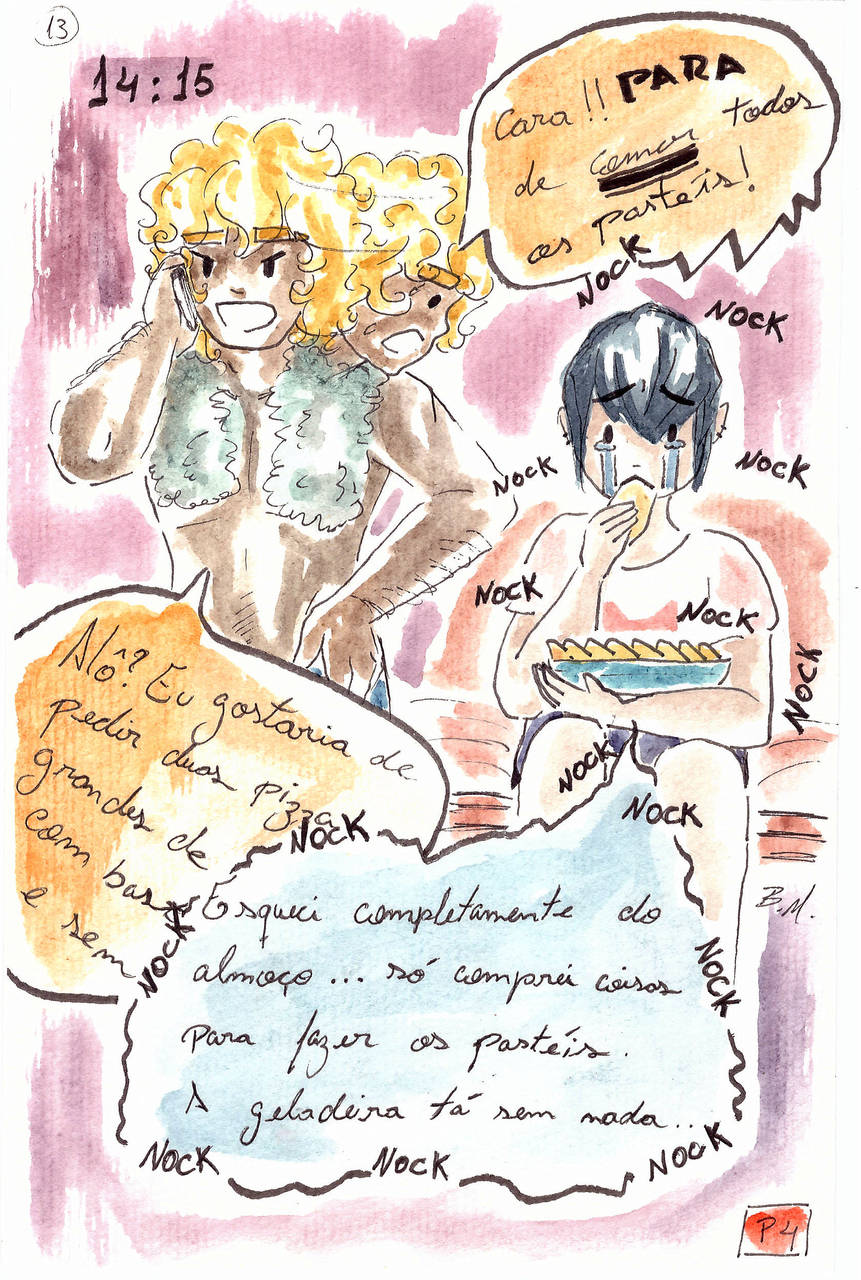 13
14:15
Cara!! PARA
de comer todos
os pastéis!
NOCK
NOCK
NOCK
NOCK
NOCK
NOCK
NOCK
Alô? Eu gostaria de
pedir duas pizza
grandes de
com bas
e sem
NOCK
NOCK
NOCK
B.M.
NOCK
Esqueci completamente do
almoço... só comprei coisas
para fazer os pastéis.
A geladeira tá sem nada...
NOCK
NOCK
NOCK
NOCK
P4